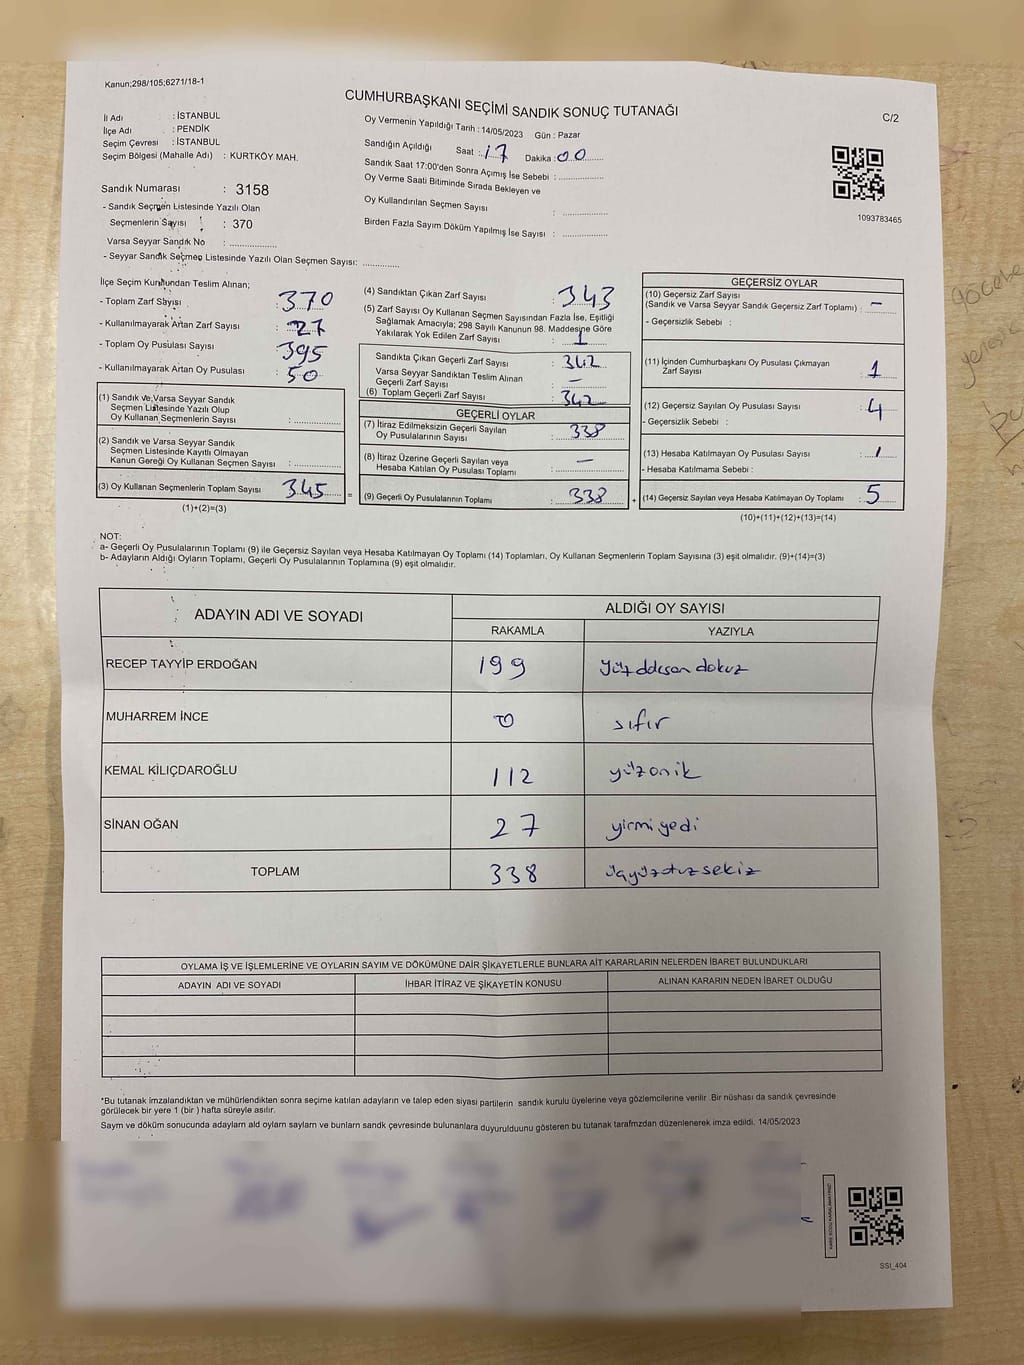 Kanun;298/105;6271/18-1
CUMHURBAŞKANI SEÇİMİ SANDIK SONUÇ TUTANAĞI
C/2
İl Adı : İSTANBUL
İlçe Adı : PENDİK
Seçim Çevresi : İSTANBUL
Seçim Bölgesi (Mahalle Adı) : KURTKÖY MAH.
Sandık Numarası : 3158
- Sandık Seçmen Listesinde Yazılı Olan
Seçmenlerin Sayısı : 370
Varsa Seyyar Sandık No : ..............
- Seyyar Sandık Seçmen Listesinde Yazılı Olan Seçmen Sayısı: ............
Oy Vermenin Yapıldığı Tarih : 14/05/2023 Gün : Pazar
Sandığın Açıldığı Saat : 17 Dakika : 00
Sandık Saat 17:00'den Sonra Açımış İse Sebebi : ..............
Oy Verme Saati Bitiminde Sırada Bekleyen ve
Oy Kullandırılan Seçmen Sayısı : ..............
Birden Fazla Sayım Döküm Yapılmış İse Sayısı : ..............
1093783465
İlçe Seçim Kurulundan Teslim Alınan;
- Toplam Zarf Sayısı : 370
- Kullanılmayarak Artan Zarf Sayısı : 27
- Toplam Oy Pusulası Sayısı : 395
- Kullanılmayarak Artan Oy Pusulası : 50
(1) Sandık ve Varsa Seyyar Sandık
Seçmen Listesinde Yazılı Olup
Oy Kullanan Seçmenlerin Sayısı : ..............
(2) Sandık ve Varsa Seyyar Sandık
Seçmen Listesinde Kayıtlı Olmayan
Kanun Gereği Oy Kullanan Seçmen Sayısı : ..............
(3) Oy Kullanan Seçmenlerin Toplam Sayısı : 345
(1)+(2)=(3)
=
(4) Sandıktan Çıkan Zarf Sayısı : 343
(5) Zarf Sayısı Oy Kullanan Seçmen Sayısından Fazla İse, Eşitliği
Sağlamak Amacıyla; 298 Sayılı Kanunun 98. Maddesine Göre
Yakılarak Yok Edilen Zarf Sayısı : 1
Sandıkta Çıkan Geçerli Zarf Sayısı : 342
Varsa Seyyar Sandıktan Teslim Alınan
Geçerli Zarf Sayısı : —
(6) Toplam Geçerli Zarf Sayısı : 342
GEÇERLİ OYLAR
(7) İtiraz Edilmeksizin Geçerli Sayılan
Oy Pusulalarının Sayısı : 338
(8) İtiraz Üzerine Geçerli Sayılan veya
Hesaba Katılan Oy Pusulası Toplamı : —
(9) Geçerli Oy Pusulalarının Toplamı : 338
+
GEÇERSİZ OYLAR
(10) Geçersiz Zarf Sayısı
(Sandık ve Varsa Seyyar Sandık Geçersiz Zarf Toplamı) : —
- Geçersizlik Sebebi :
(11) İçinden Cumhurbaşkanı Oy Pusulası Çıkmayan
Zarf Sayısı : 1
(12) Geçersiz Sayılan Oy Pusulası Sayısı : 4
- Geçersizlik Sebebi :
(13) Hesaba Katılmayan Oy Pusulası Sayısı : 1
- Hesaba Katılmama Sebebi :
(14) Geçersiz Sayılan veya Hesaba Katılmayan Oy Toplamı : 5
(10)+(11)+(12)+(13)=(14)
NOT:
a- Geçerli Oy Pusulalarının Toplamı (9) ile Geçersiz Sayılan veya Hesaba Katılmayan Oy Toplamı (14) Toplamları, Oy Kullanan Seçmenlerin Toplam Sayısına (3) eşit olmalıdır. (9)+(14)=(3)
b- Adayların Aldığı Oyların Toplamı, Geçerli Oy Pusulalarının Toplamına (9) eşit olmalıdır.
ADAYIN ADI VE SOYADI ALDIĞI OY SAYISI
RAKAMLA YAZIYLA
RECEP TAYYİP ERDOĞAN 199 yüzddosan dokuz
MUHARREM İNCE 0 sıfır
KEMAL KILIÇDAROĞLU 112 yüzonik
SİNAN OĞAN 27 yirmiyedi
TOPLAM 338
OYLAMA İŞ VE İŞLEMLERİNE VE OYLARIN SAYIM VE DÖKÜMÜNE DAİR ŞİKAYETLERLE BUNLARA AİT KARARLARIN NELERDEN İBARET BULUNDUKLARI
ADAYIN ADI VE SOYADI İHBAR İTİRAZ VE ŞİKAYETİN KONUSU ALINAN KARARIN NEDEN İBARET OLDUĞU
*Bu tutanak imzalandıktan ve mühürlendikten sonra seçime katılan adayların ve talep eden siyasi partilerin sandık kurulu üyelerine veya gözlemcilerine verilir .Bir nüshası da sandık çevresinde
görülecek bir yere 1 (bir ) hafta süreyle asılır.
Saym ve döküm sonucunda adaylam ald oylam saylam ve bunlarn sandk çevresinde bulunanlara duyurulduunu gösteren bu tutanak tarafmzdan düzenlenerek imza edildi. 14/05/2023
SSI_404